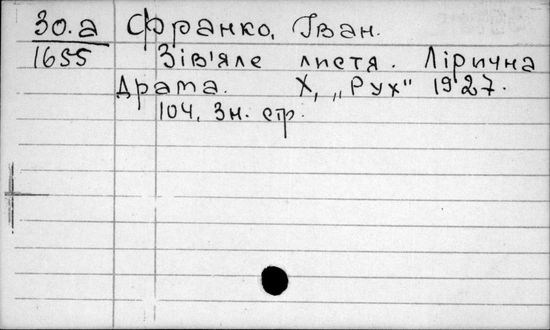 30.а Франко, Іван.
1655 Зів'яле листя. Лірична
драма. Х, „Рух" 1927.
104, 3н. стр.